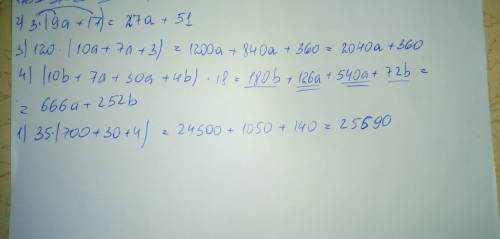 2) 3·(9a + 17) = 27a + 51
3) 120 · (10a + 7a + 3) = 1200a + 840a + 360 = 2040a + 360
4) (10b + 7a + 30a + 4b) · 18 = 180b + 126a + 540a + 72b =
= 666a + 252b
1) 35·(700 + 30 + 4) = 24500 + 1050 + 140 = 25690